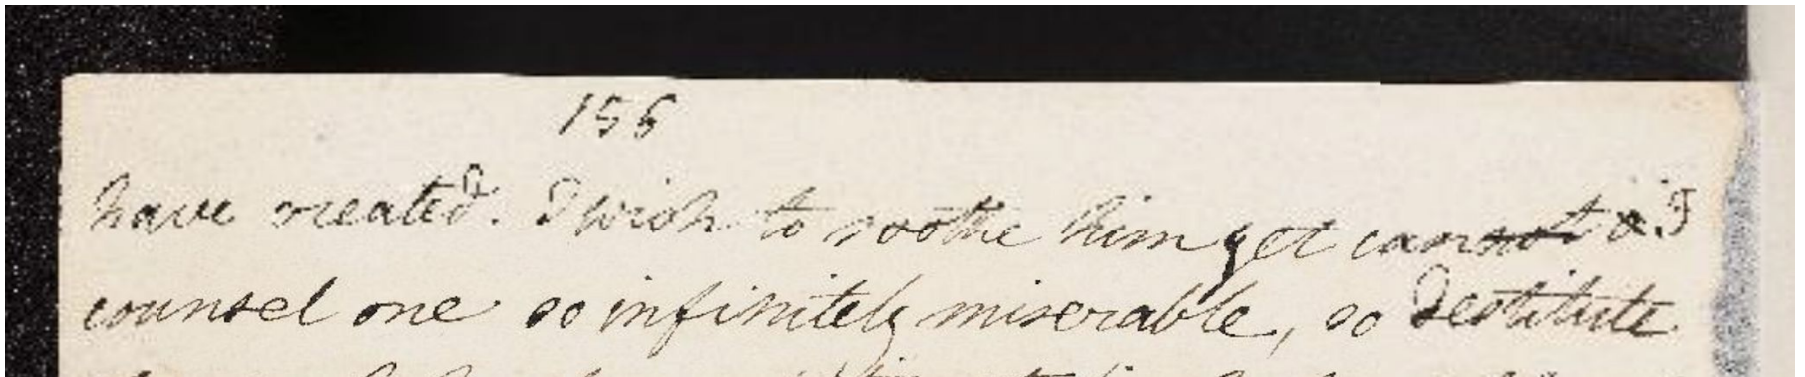 156
have created. I wish to soothe him yet can I
counsel one so infinitely miserable, so destitute